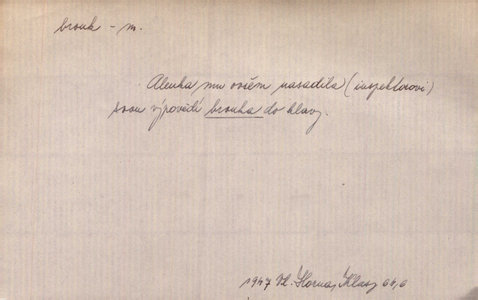 brouk - m.
Alenka mu ovšem nasadila (inspektorovi)
svou výpovědí brouka do hlavy.
1947 Vl. Hornaj, Klasy 64,6